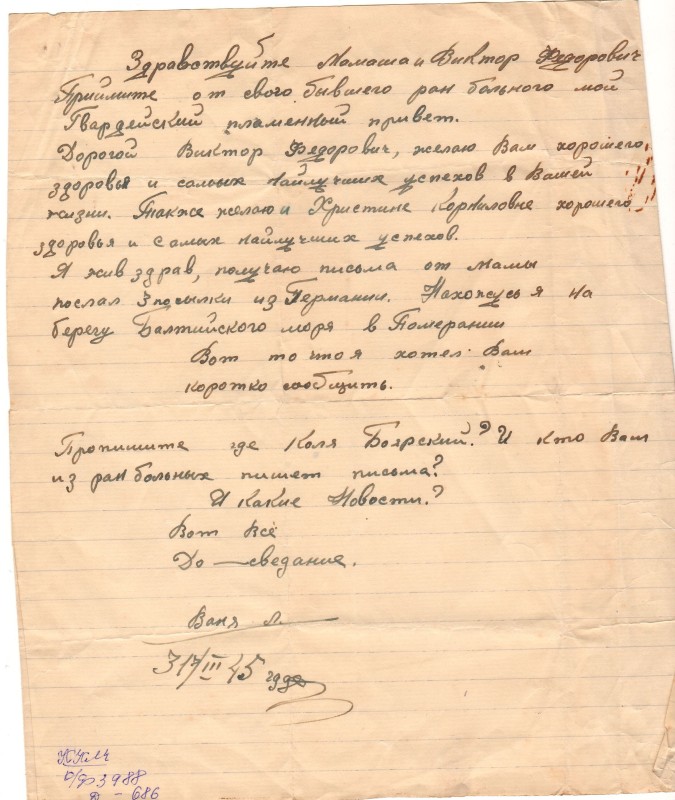 Здравствуйте Мамаша и Виктор Федорович
Приймите от свого бывшего ран больного мой
Гвардейский пламенный привет.
Дорогой Виктор Федорович, желаю Вам хорошего
здоровья и самых найлучших успехов в Вашей
жизни. Также желаю и Христине Корниловне хорошего
здоровья и самых найлучших успехов.
Я жив здрав, получаю письма от мамы
послал 3 посылки из Германии. Нахожусь я на
берегу Балтийского моря в Померании
Вот то что я хотел Вам
коротко сообщить.
Пропишите где Коля Боярский.? И кто Вам
из ран больных пишет письма?
И какие Новости.?
Вот Всё
До — сведание.
Ваня Л.
31/III 45 года
ККМ
3988
Д - 686